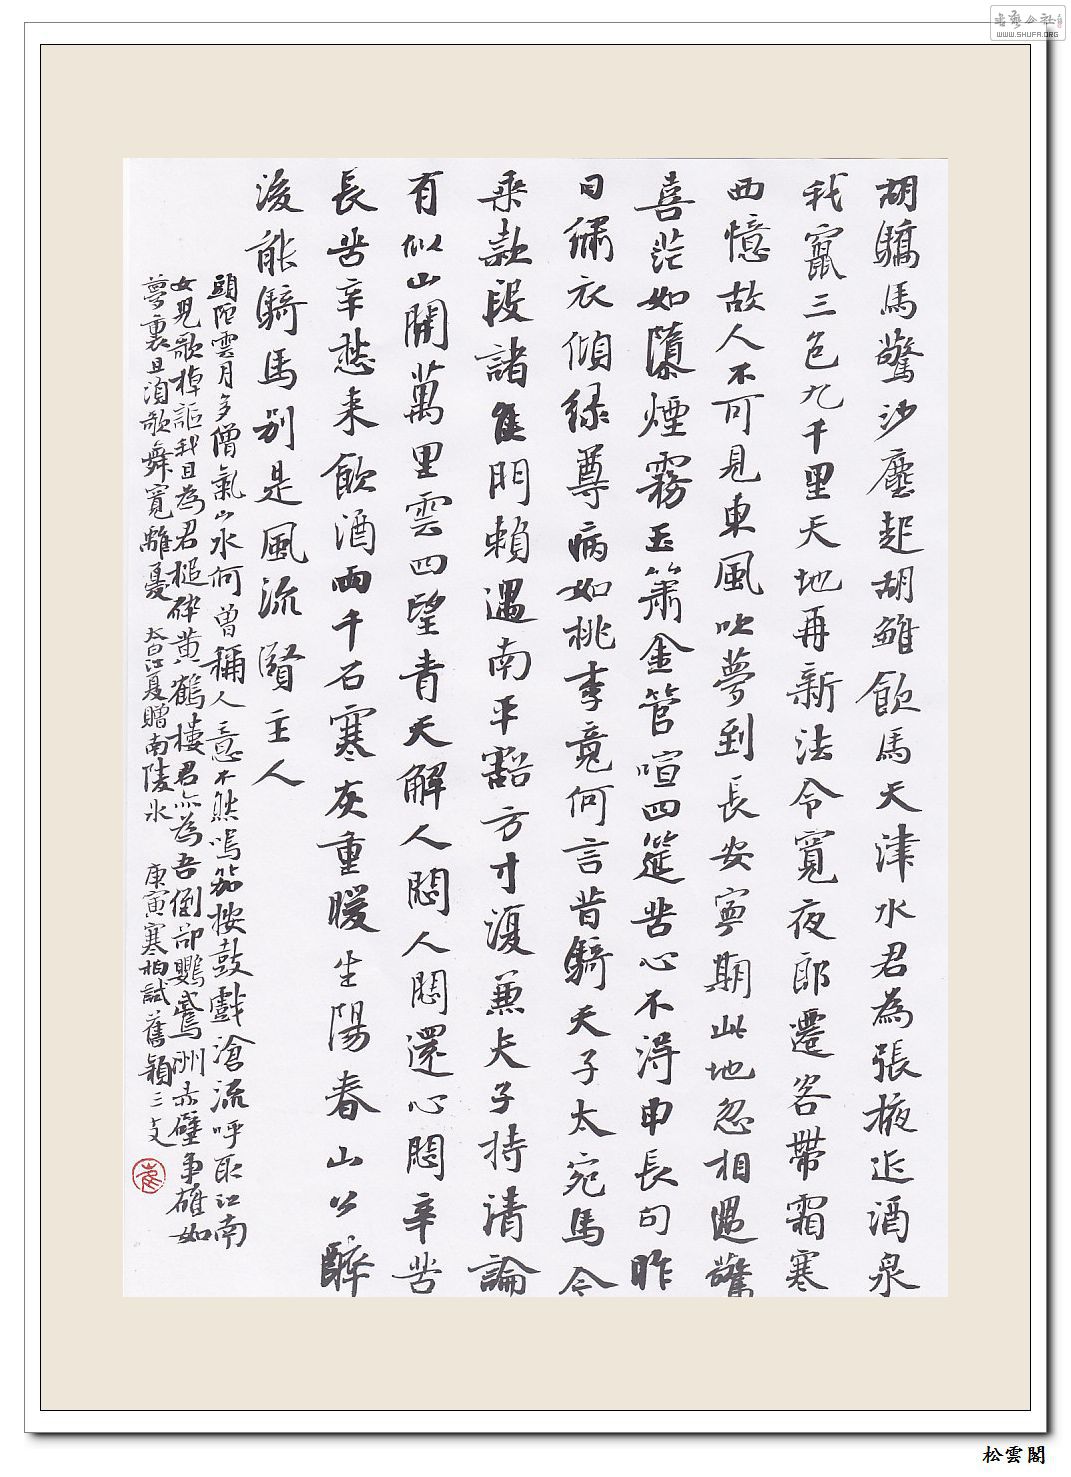 胡驕馬驚沙塵起胡雛飲馬天津水君為張掖近酒泉
我竄三色九千里天地再新法令寬夜郎遷客帶霜寒
西憶故人不可見東風吹夢到長安寧期此地忽相遇驚
喜茫如隳煙霧玉簫金管喧四筵苦心不得申長句昨
日繡衣傾綠尊病如桃李竟何言昔騎天子大宛馬今
乘款段諸侯門賴遇南平豁方寸復兼夫子持清論
有似山開萬里雲四望青天解人悶人悶還心悶辛苦
長苦辛愁來飲酒兩千石寒灰重暖生陽春山公醉
後能騎馬別是風流賢主人
頭陀雲月多僧氣山水何曾稱人意不然鳴笳按鼓戲滄流呼取江南
女兒歌棹謳我且為君槌碎黃鶴樓君亦為吾倒卻鸚鵡洲赤壁爭雄如
夢裏且須歌舞寬離憂 太白江夏贈南陵冰 庚寅寒柏試舊穎三支
松雲閣
WWW.SHUFA.ORG